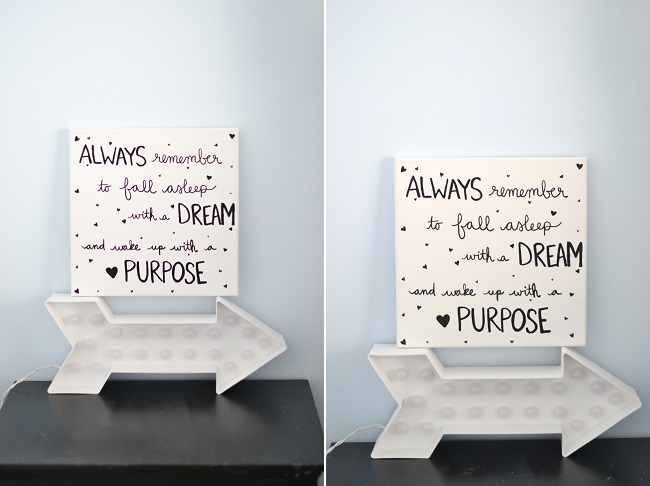 ALWAYS remember
to fall asleep
with a DREAM
and wake up with a
PURPOSE
ALWAYS remember
to fall asleep
with a DREAM
and wake up with a
PURPOSE